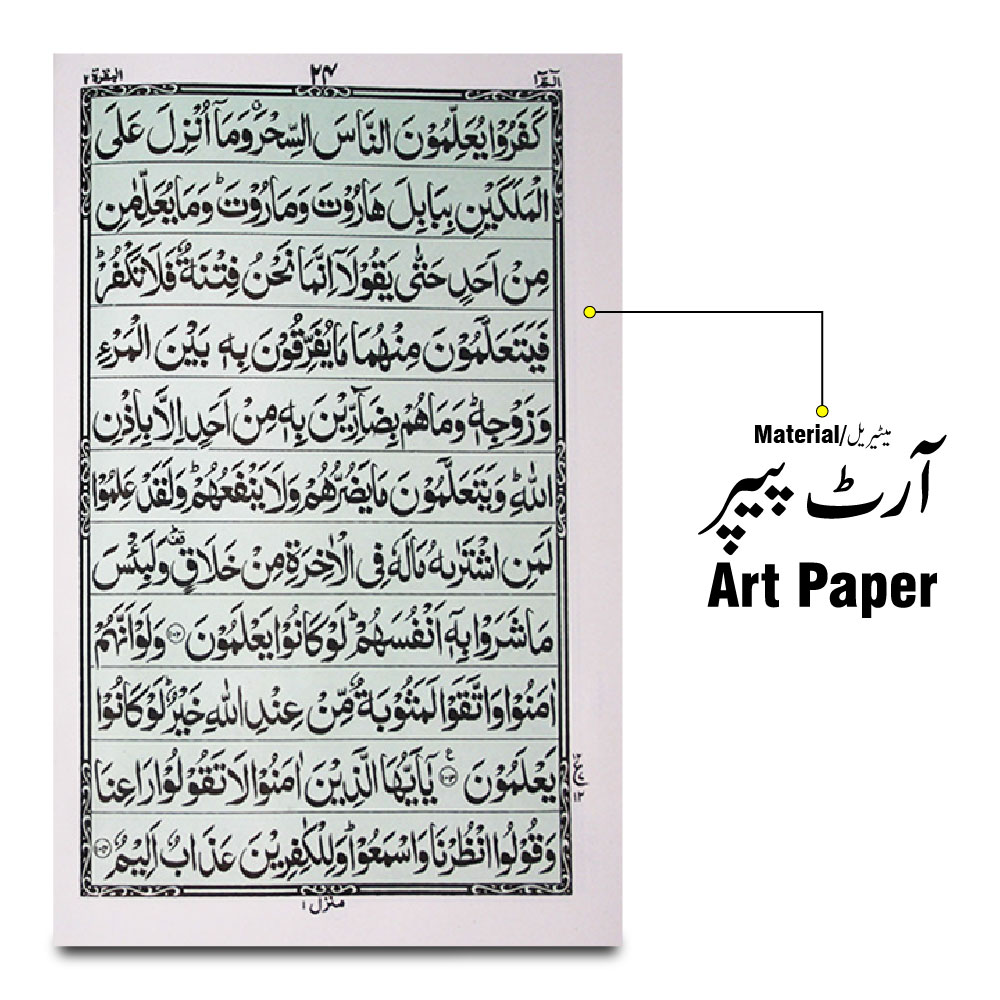 الٓمّٓ ١
٢٤
البقرة ٢
كَفَرُوْا يُعَلِّمُوْنَ النَّاسَ السِّحْرَ ۗ وَمَاۤ اُنْزِلَ عَلَى
الْمَلَكَيْنِ بِبَابِلَ هَارُوْتَ وَمَارُوْتَ ؕ وَمَا يُعَلِّمٰنِ
مِنْ اَحَدٍ حَتّٰى يَقُوْلَاۤ اِنَّمَا نَحْنُ فِتْنَةٌ فَلَا تَكْفُرْ ؕ
فَيَتَعَلَّمُوْنَ مِنْهُمَا مَا يُفَرِّقُوْنَ بِهٖ بَيْنَ الْمَرْءِ
وَزَوْجِهٖ ؕ وَمَا هُمْ بِضَآرِّيْنَ بِهٖ مِنْ اَحَدٍ اِلَّا بِاِذْنِ
اللّٰهِ ؕ وَيَتَعَلَّمُوْنَ مَا يَضُرُّهُمْ وَلَا يَنْفَعُهُمْ ؕ وَلَقَدْ عَلِمُوْا
لَمَنِ اشْتَرٰىهُ مَا لَهٗ فِى الْاٰخِرَةِ مِنْ خَلَاقٍ ؕ وَلَبِئْسَ
مَا شَرَوْا بِهٖۤ اَنْفُسَهُمْ ؕ لَوْ كَانُوْا يَعْلَمُوْنَ ﴿١٠٢﴾ وَلَوْ اَنَّهُمْ
اٰمَنُوْا وَاتَّقَوْا لَمَثُوْبَةٌ مِّنْ عِنْدِ اللّٰهِ خَيْرٌ ؕ لَوْ كَانُوْا
يَعْلَمُوْنَ ﴿١٠٣﴾ يٰۤاَيُّهَا الَّذِيْنَ اٰمَنُوْا لَا تَقُوْلُوْا رَاعِنَا
ع
١٢
وَقُوْلُوا انْظُرْنَا وَاسْمَعُوْا ؕ وَلِلْكٰفِرِيْنَ عَذَابٌ اَلِيْمٌ ﴿١٠٤﴾
منزل ١
Material/میٹیریل
آرٹ پیپر
Art Paper